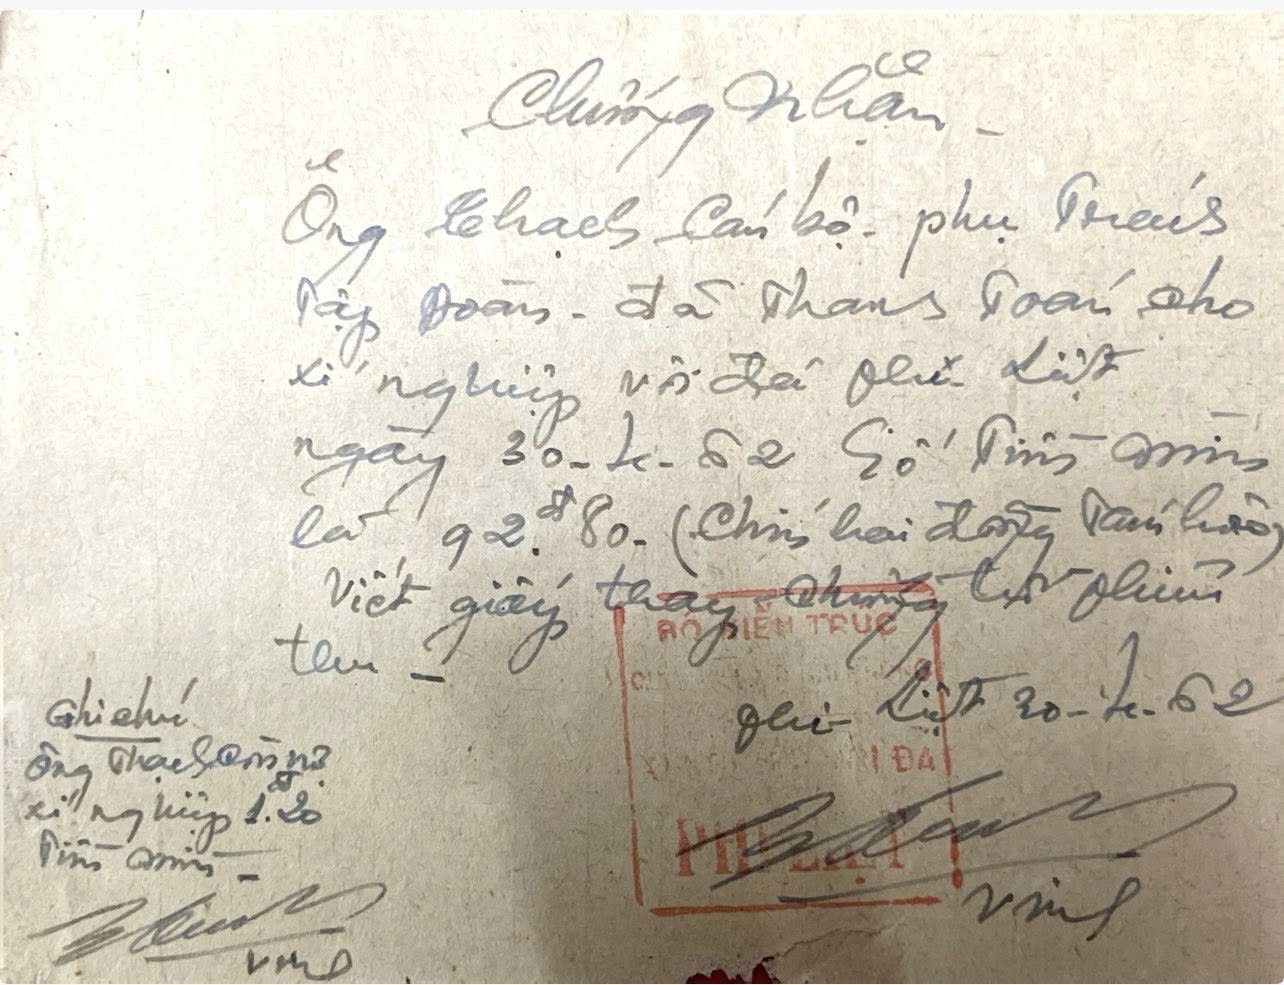 Chứng Nhận -
Ông Thạch Cán bộ phụ Trách
Tập Đoàn - đã Thanh Toán cho
xí nghiệp vôi đá phú Liệt
ngày 30-4-62 Số Tiền
là 92đ.80- (Chín hai đồng Tám hào)
Viết giấy thay chứng từ phiếu
thu -
BỘ KIẾN TRÚC
phú Liệt 30-4-62
XÍ NGHIỆP VÔI ĐÁ
PHÚ LIỆT
Vinh
Ghi chú
Ông Thạch còn nợ
xí nghiệp 1đ.20
Tiền
Vinh